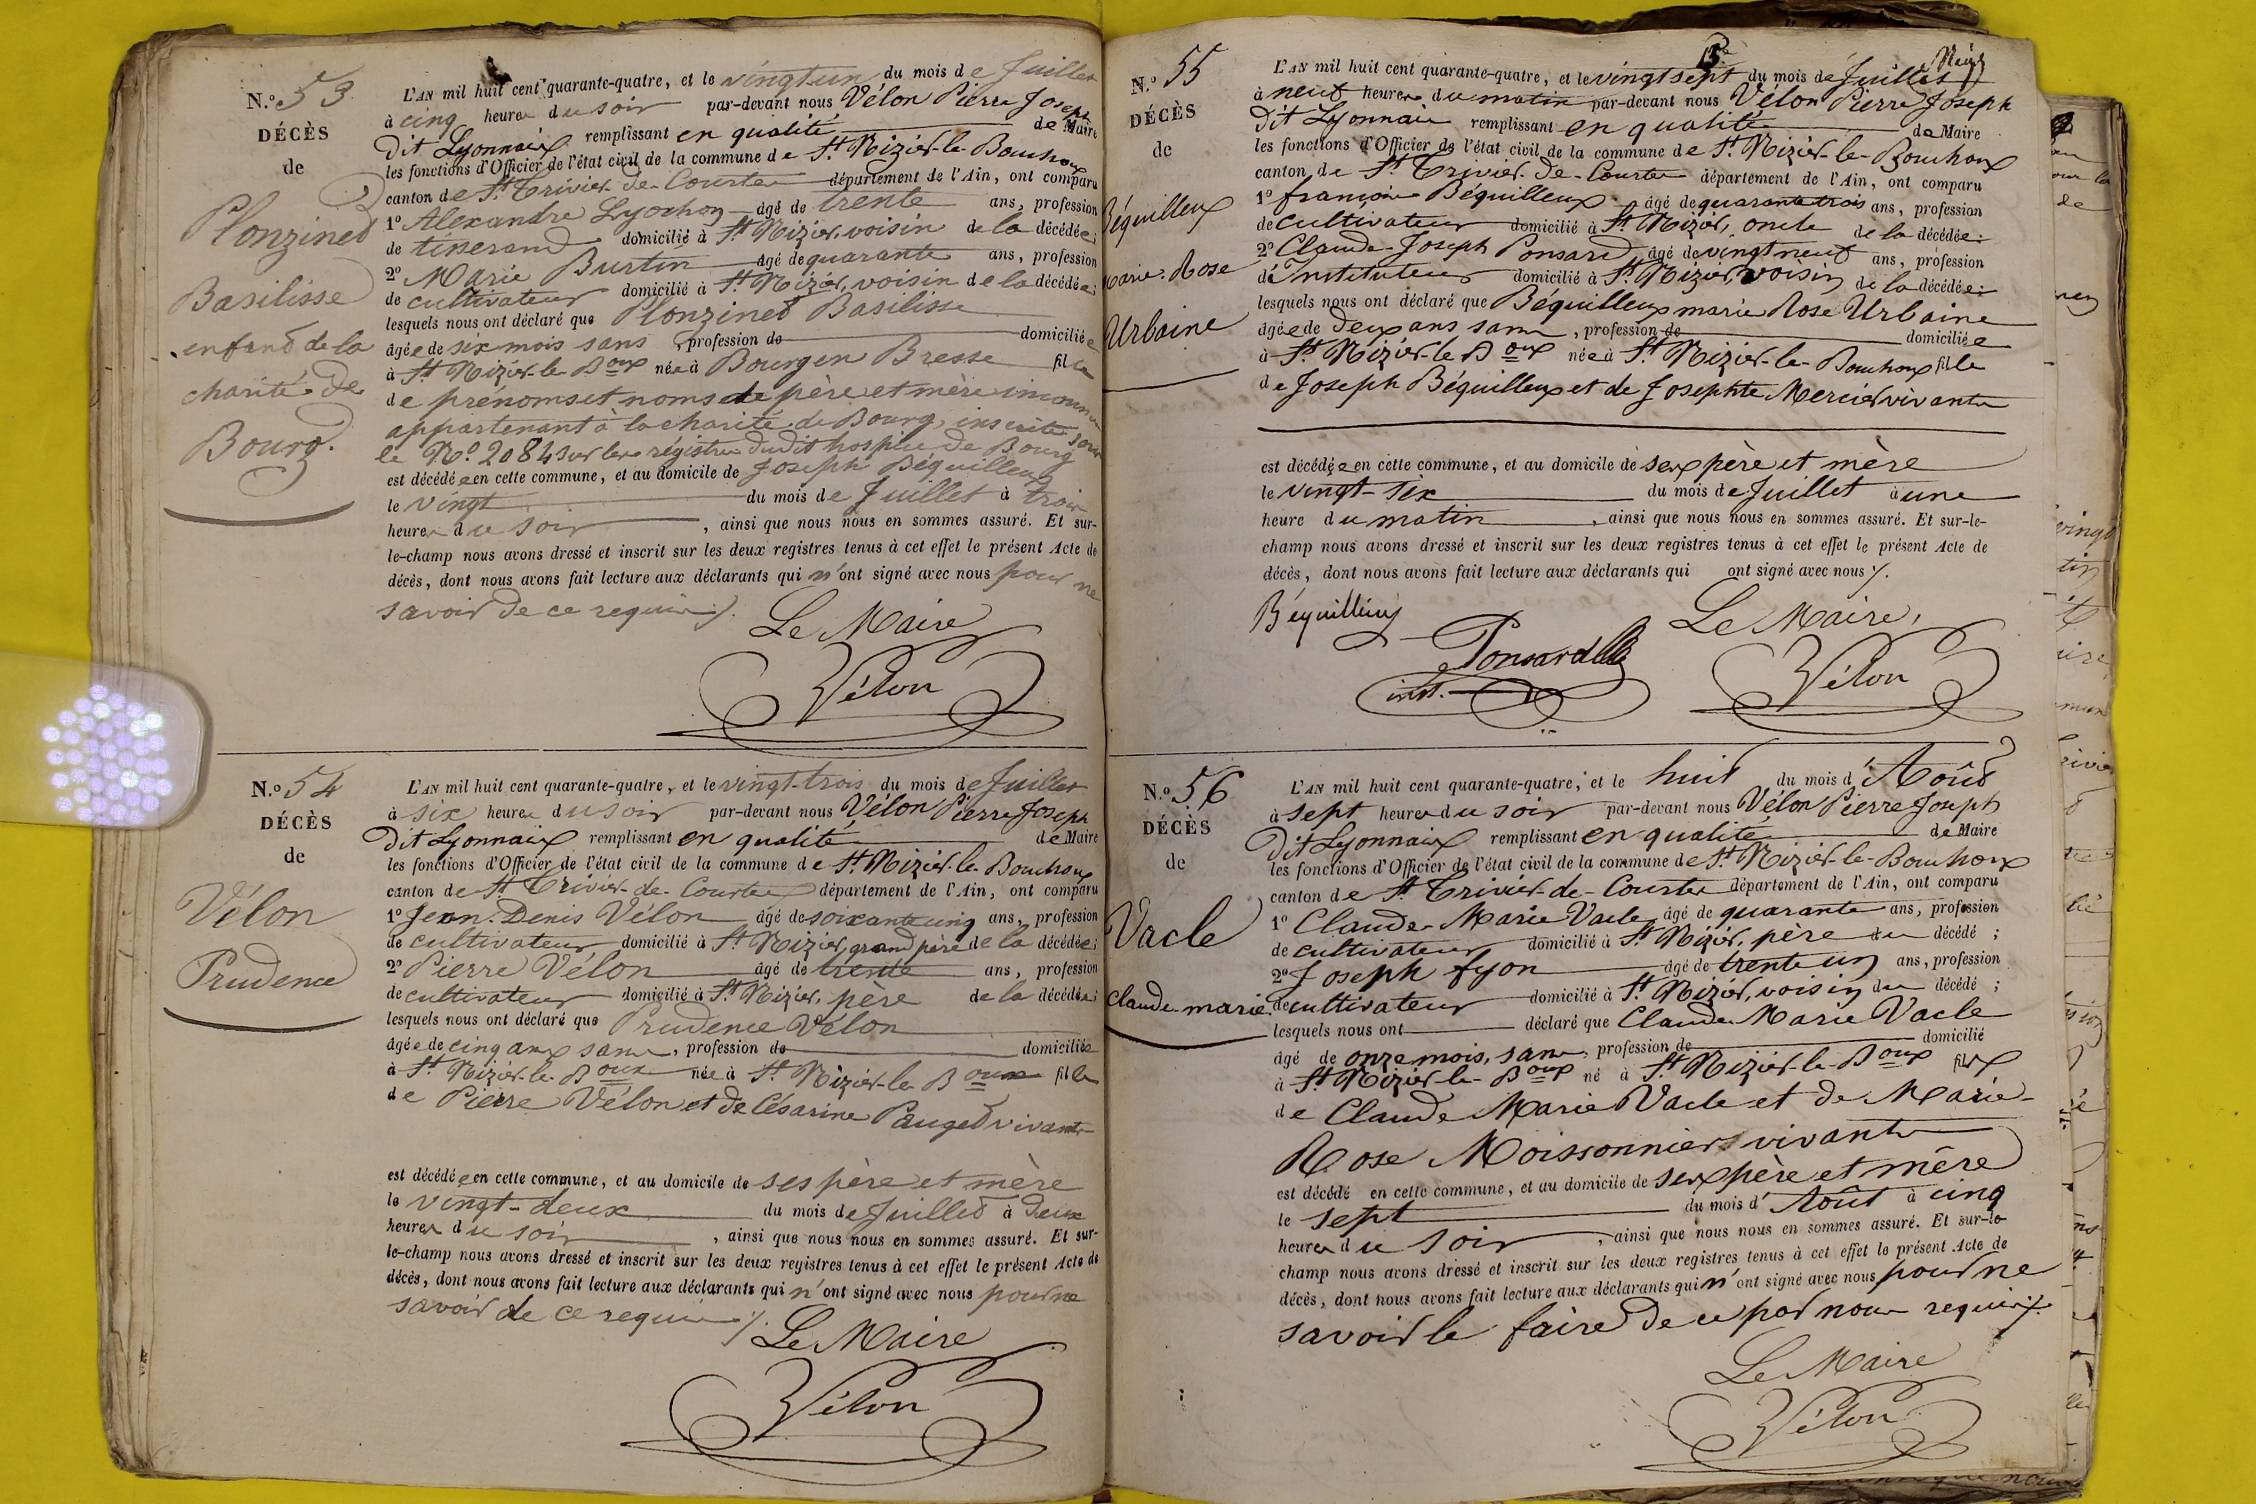 N.o 53
DÉCÈS
de
Plonzined
Basilisse
enfand de la
charité de
Bourg.
L'AN mil huit cent quarante-quatre, et le vingt un du mois de Juillet
à cinq heures du soir par-devant nous Vélon Pierre Joseph
Dit Lyonnaix remplissant en qualité de Maire
les fonctions d'Officier de l'état civil de la commune de St. Nizier-le-Bouhoux
canton de St. Trivier-de-Courtes département de l'Ain, ont comparu
1o Alexandre Lyochon âgé de trente ans, profession
de tisserand domicilié à St. Nizier, voisin de la décédée;
2o Marie Burtin âgé de quarante ans, profession
de cultivateur domicilié à St. Nizier, voisin de la décédée;
lesquels nous ont déclaré que Plonzined Basilisse
âgée de six mois sans , profession de domiciliée
à St. Nizier-le-Boux née à Bourg en Bresse fille
de prénoms et noms de père et mère inconnus
appartenant à la charité de Bourg, inscrite sous
le No. 2084 sur les régistres dudit hospice de Bourg
est décédée en cette commune, et au domicile de Joseph Béquilleux
le vingt du mois de Juillet à trois
heures du soir , ainsi que nous nous en sommes assuré. Et sur-
le-champ nous avons dressé et inscrit sur les deux registres tenus à cet effet le présent Acte de
décès, dont nous avons fait lecture aux déclarants qui n'ont signé avec nous pour ne
savoir de ce requis ./.
Le Maire
Vélon
N.o 54
DÉCÈS
de
Vélon
Prudence
L'AN mil huit cent quarante-quatre, et le vingt-trois du mois de Juillet
à six heures du soir par-devant nous Vélon Pierre Joseph
Dit Lyonnaix remplissant en qualité de Maire
les fonctions d'Officier de l'état civil de la commune de St. Nizier-le-Bouhoux
canton de St. Trivier-de-Courtes département de l'Ain, ont comparu
1o Jean-Denis Vélon âgé de soixante cinq ans, profession
de cultivateur domicilié à St. Nizier, grand père de la décédée;
2o Pierre Vélon âgé de trente ans, profession
de cultivateur domicilié à St. Nizier, père de la décédée;
lesquels nous ont déclaré que Prudence Vélon
âgée de cinq ans sans , profession de domiciliée
à St. Nizier-le-Boux née à St. Nizier-le-Boux fille
de Pierre Vélon et de Césarine Pauged vivants
est décédée en cette commune, et au domicile de ses père et mère
le vingt-deux du mois de Juilled à Deux
heures du soir , ainsi que nous nous en sommes assuré. Et sur-
le-champ nous avons dressé et inscrit sur les deux registres tenus à cet effet le présent Acte de
décès, dont nous avons fait lecture aux déclarants qui n'ont signé avec nous pour ne
savoir de ce requis ./.
Le Maire
Vélon
N.o 55
DÉCÈS
de
Béquilleux
Marie-Rose
Urbaine
L'AN mil huit cent quarante-quatre, et le vingt sept du mois de Juillet
à neuf heures du matin par-devant nous Vélon Pierre Joseph
Dit Lyonnaix remplissant en qualité de Maire
les fonctions d'Officier de l'état civil de la commune de St. Nizier-le-Bouhoux
canton de St. Trivier-de-Courtes département de l'Ain, ont comparu
1o françois Béquilleux âgé de quarante trois ans, profession
de cultivateur domicilié à St. Nizier, oncle de la décédée;
2o Claude-Joseph Ponsard âgé de vingt neuf ans, profession
de Instituteur domicilié à St. Nizier, voisin de la décédée;
lesquels nous ont déclaré que Béquilleux marie Rose Urbaine
âgée de deux ans sans , profession de domiciliée
à St. Nizier-le-Boux née à St. Nizier-le-Bouhoux fille
de Joseph Béquilleux et de Josephte Mercier vivants
est décédée en cette commune, et au domicile de ses père et mère
le vingt-six du mois de Juillet à une
heure du matin , ainsi que nous nous en sommes assuré. Et sur-le-
champ nous avons dressé et inscrit sur les deux registres tenus à cet effet le présent Acte de
décès, dont nous avons fait lecture aux déclarants qui ont signé avec nous ./.
Béquilleux
Ponsard
inst.
Le Maire,
Vélon
N.o 56
DÉCÈS
de
Vacle
Claude-marie
L'AN mil huit cent quarante-quatre, et le huit du mois d'Aoûd
à sept heures du soir par-devant nous Vélon Pierre Joseph
Dit Lyonnaix remplissant en qualité de Maire
les fonctions d'Officier de l'état civil de la commune de St. Nizier-le-Bouhoux
canton de St. Trivier-de-Courtes département de l'Ain, ont comparu
1o Claude-Marie Vacle âgé de quarante ans, profession
de cultivateur domicilié à St. Nizier, père du décédé ;
2o Joseph fyon âgé de trente un ans, profession
de cultivateur domicilié à St. Nizier, voisin du décédé ;
lesquels nous ont déclaré que Claude Marie Vacle
âgé de onze mois, sans , profession de domicilié
à St. Nizier-le-Boux né à St. Nizier-le-Boux fils
de Claude Marie Vacle et de Marie-
Rose Moissonnier vivants
est décédé en cette commune, et au domicile de ses père et mère
le sept du mois d'Août à cinq
heures du soir , ainsi que nous nous en sommes assuré. Et sur-le-
champ nous avons dressé et inscrit sur les deux registres tenus à cet effet le présent Acte de
décès, dont nous avons fait lecture aux déclarants qui n'ont signé avec nous pour ne
savoir le faire de ce par nous requis ./.
Le Maire
Vélon